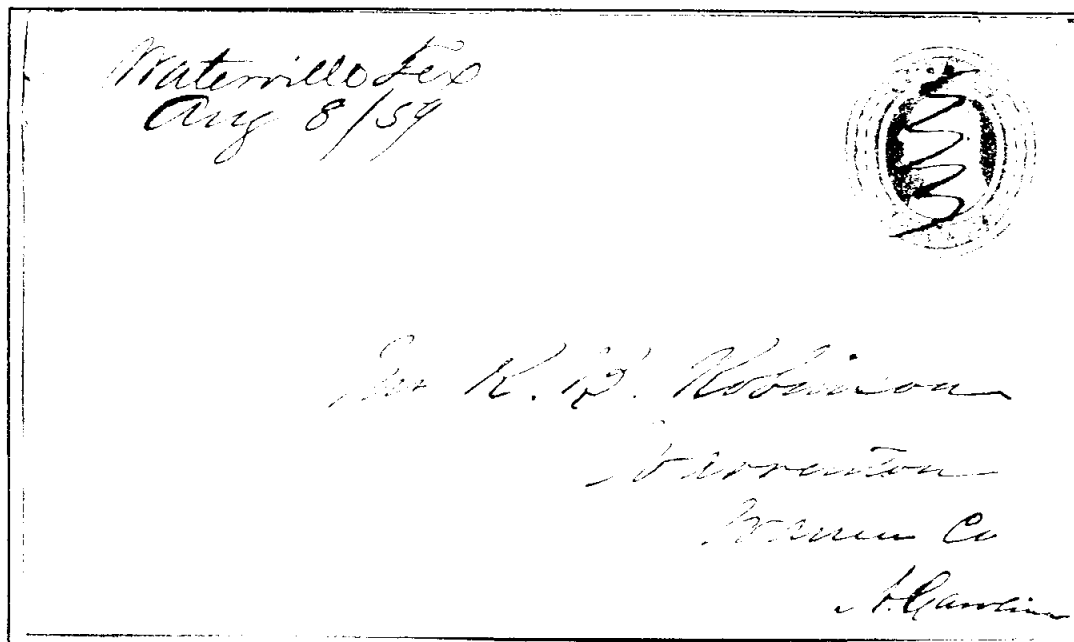 Waterville Tex
Aug 8/59
K. B. Robinson
Warrenton
Warren Co
N. Carolina